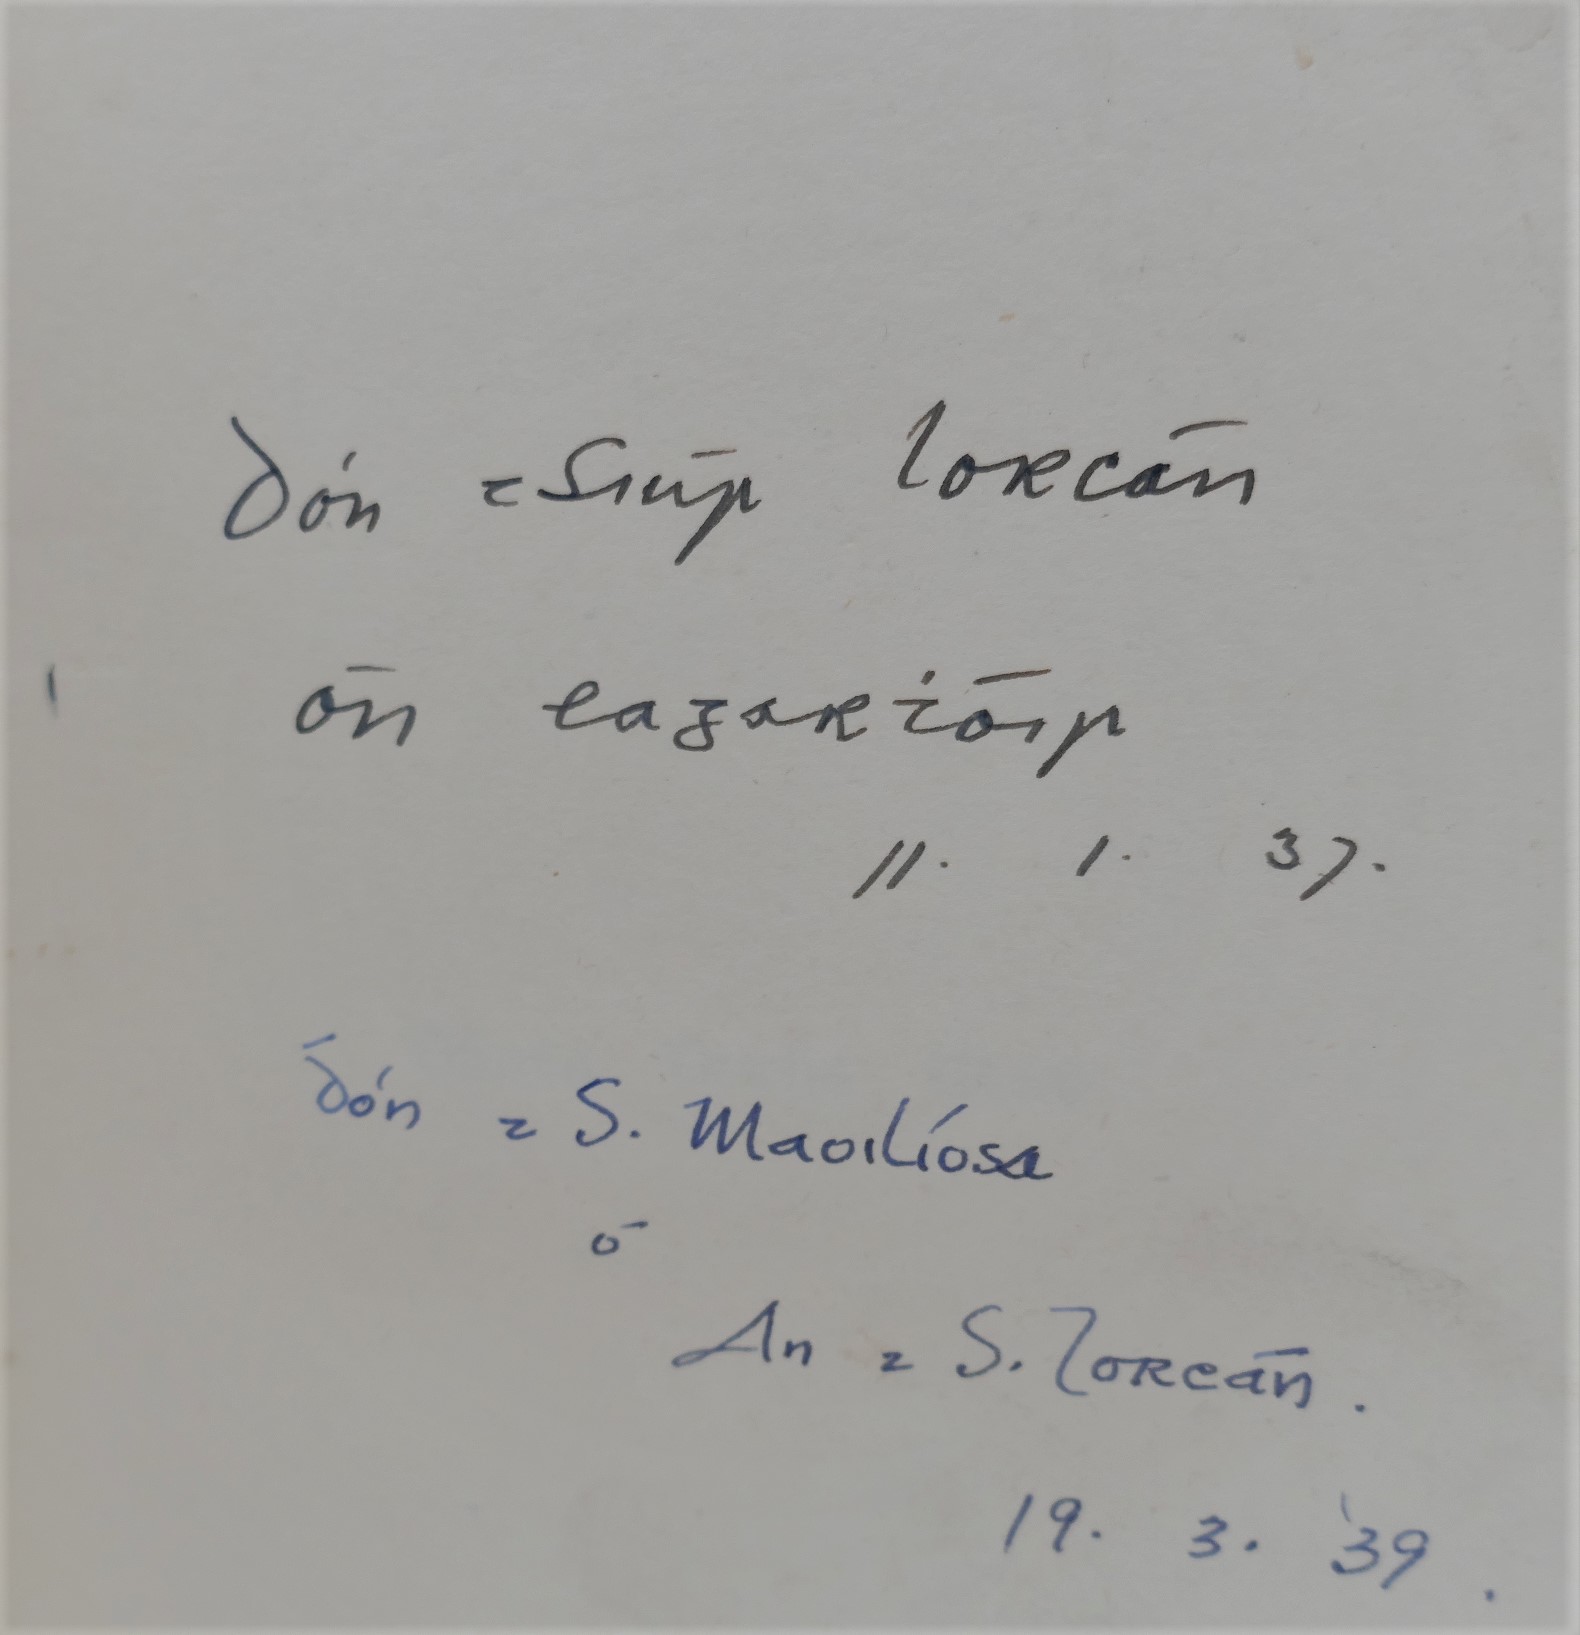 Dón tSiúr Lorcán
ón eagarṫóir
11. 1. 37.
Dón t S. Maoilíosa
ó
An t S. Lorcán.
19. 3. '39.